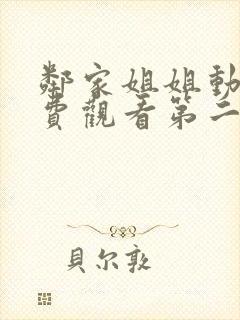 鄰家姐姐動
費觀看第二
貝尔敦